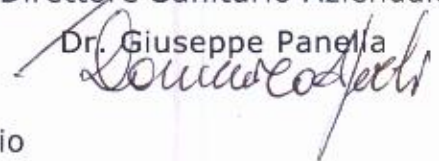 Direttore Sanitario Aziendale
Dr. Giuseppe Panella
io